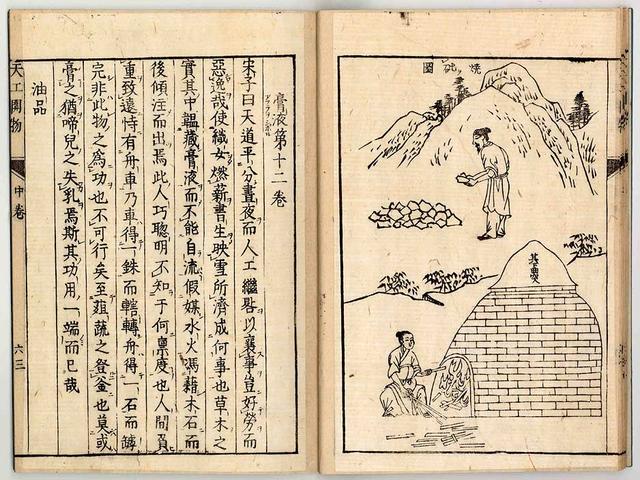 燒砒圖
膏液第十二卷
宋子曰天道平分晝夜而人工繼晷以襄事豈好勞而
惡逸哉使織女燃薪書生映雪所濟成何事也草木之
實其中韞藏膏液而不能自流假媒水火馮藉木石而
後傾注而出焉此人巧聰明不知于何稟度也人間負
重致遠恃有舟車乃車得一銖而轄轉舟得一石而罅
完非此物之為功也不可行矣至葅蔬之登釜也莫或
膏之猶啼兒之失乳焉斯其功用一端而已哉
油品
天工開物
中卷
六三